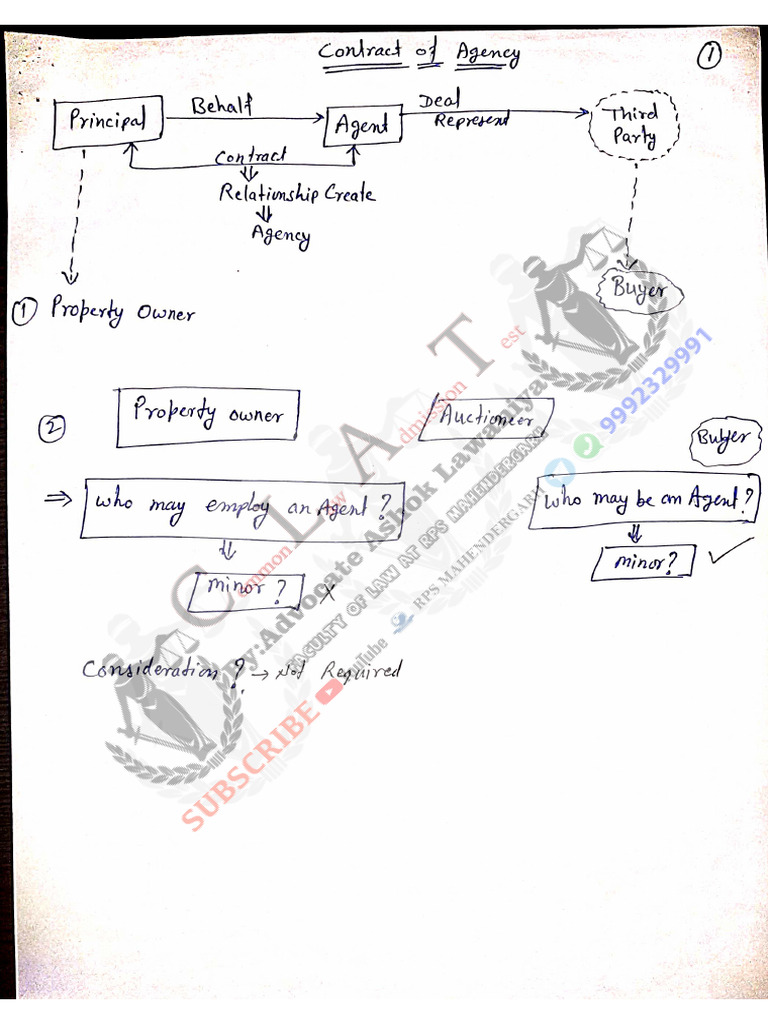 Contract of Agency
1
Principal
Behalf
Agent
Deal
Represent
Third
Party
Contract
Relationship Create
Agency
Buyer
1 Property Owner
2
Property owner
Auctioneer
Buyer
Who may employ an Agent?
Who may be an Agent?
Minor? X
Minor? ✓
Consideration? → Not Required
Common Law Admission Test
By:Advocate Ashok Lawaniya
FACULTY OF LAW AT RPS MAHENDERGARH
RPS MAHENDERGARH
9992329991
SUBSCRIBE YouTube